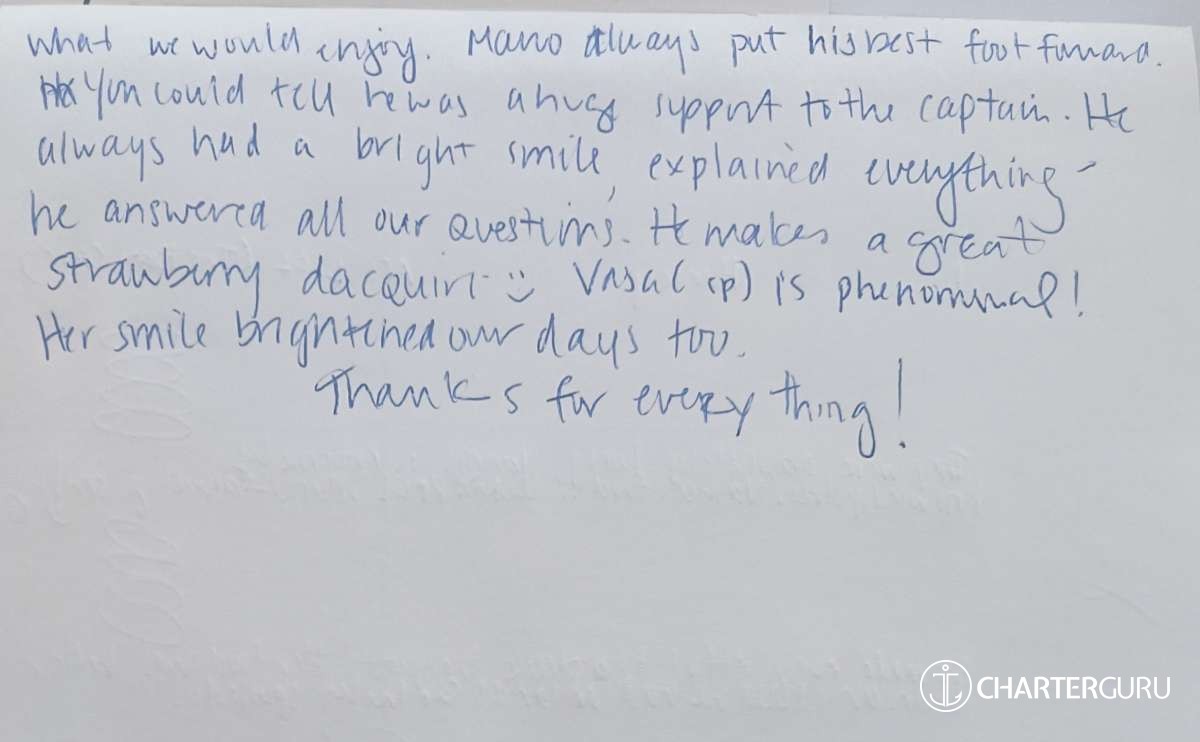 What we would enjoy. Mano always put his best foot forward.
You could tell he was a huge support to the captain. He
always had a bright smile, explained everything -
he answered all our questions. He makes a great
strawberry dacquiri :) Vasal (sp) is phenomenal!
Her smile brightened our days too.
Thanks for every thing!
CHARTERGURU